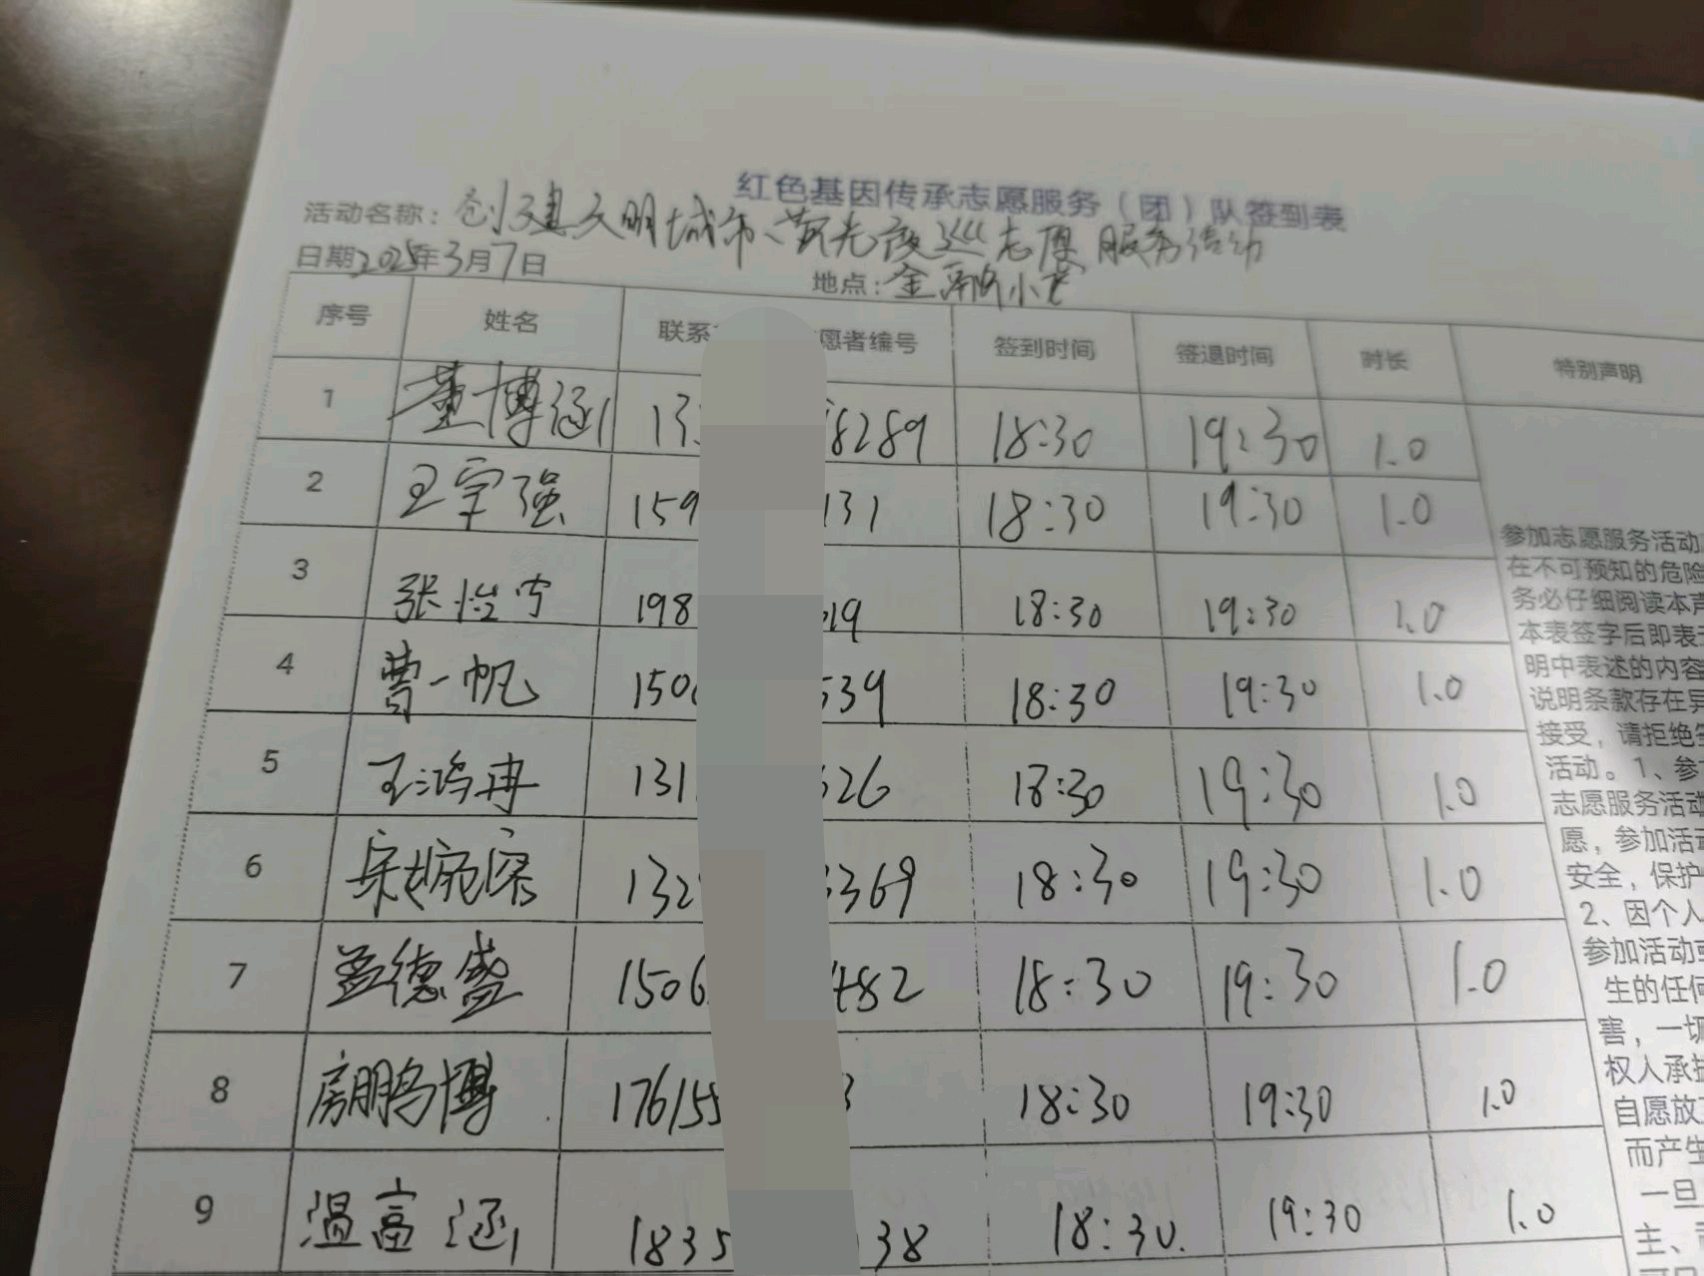 红色基因传承志愿服务（团）队签到表
活动名称：创建文明城市、萤光夜巡志愿服务活动
日期2025年3月7日 地点：金 小
序号 姓名 联系 愿者编号 签到时间 签退时间 时长 特别声明
1 董博涵 13 8289 18:30 19:30 1.0
2 王宇强 159 131 18:30 19:30 1.0
3 张怡宁 198 19 18:30 19:30 1.0
4 曹一帆 150 539 18:30 19:30 1.0
5 王鸿冉 131 26 18:30 19:30 1.0
6 宋婉 132 3369 18:30 19:30 1.0
7 孟德盛 1506 482 18:30 19:30 1.0
8 房鹏博 176155 3 18:30 19:30 1.0
9 温富涵 1835 38 18:30. 19:30 1.0
参加志愿服务活动
在不可预知的危险
务必仔细阅读本声
本表签字后即表
明中表述的内容
说明条款存在异
接受，请拒绝
活动。1、参
志愿服务活动
愿，参加活动
安全，保护
2、因个人
参加活动
生的任何
害，一切
权人承担
自愿放
而产生
一旦
主、